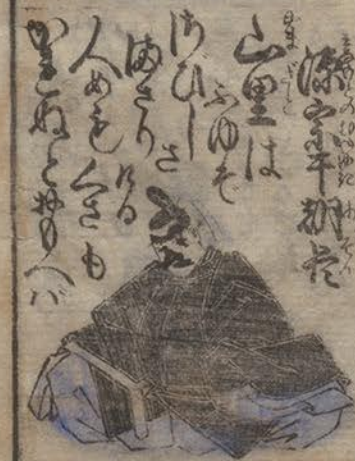 源宗于朝臣
山里は
ふゆぞ
さびしさ
まさりける
人めもくさも
かれぬとおもへバ